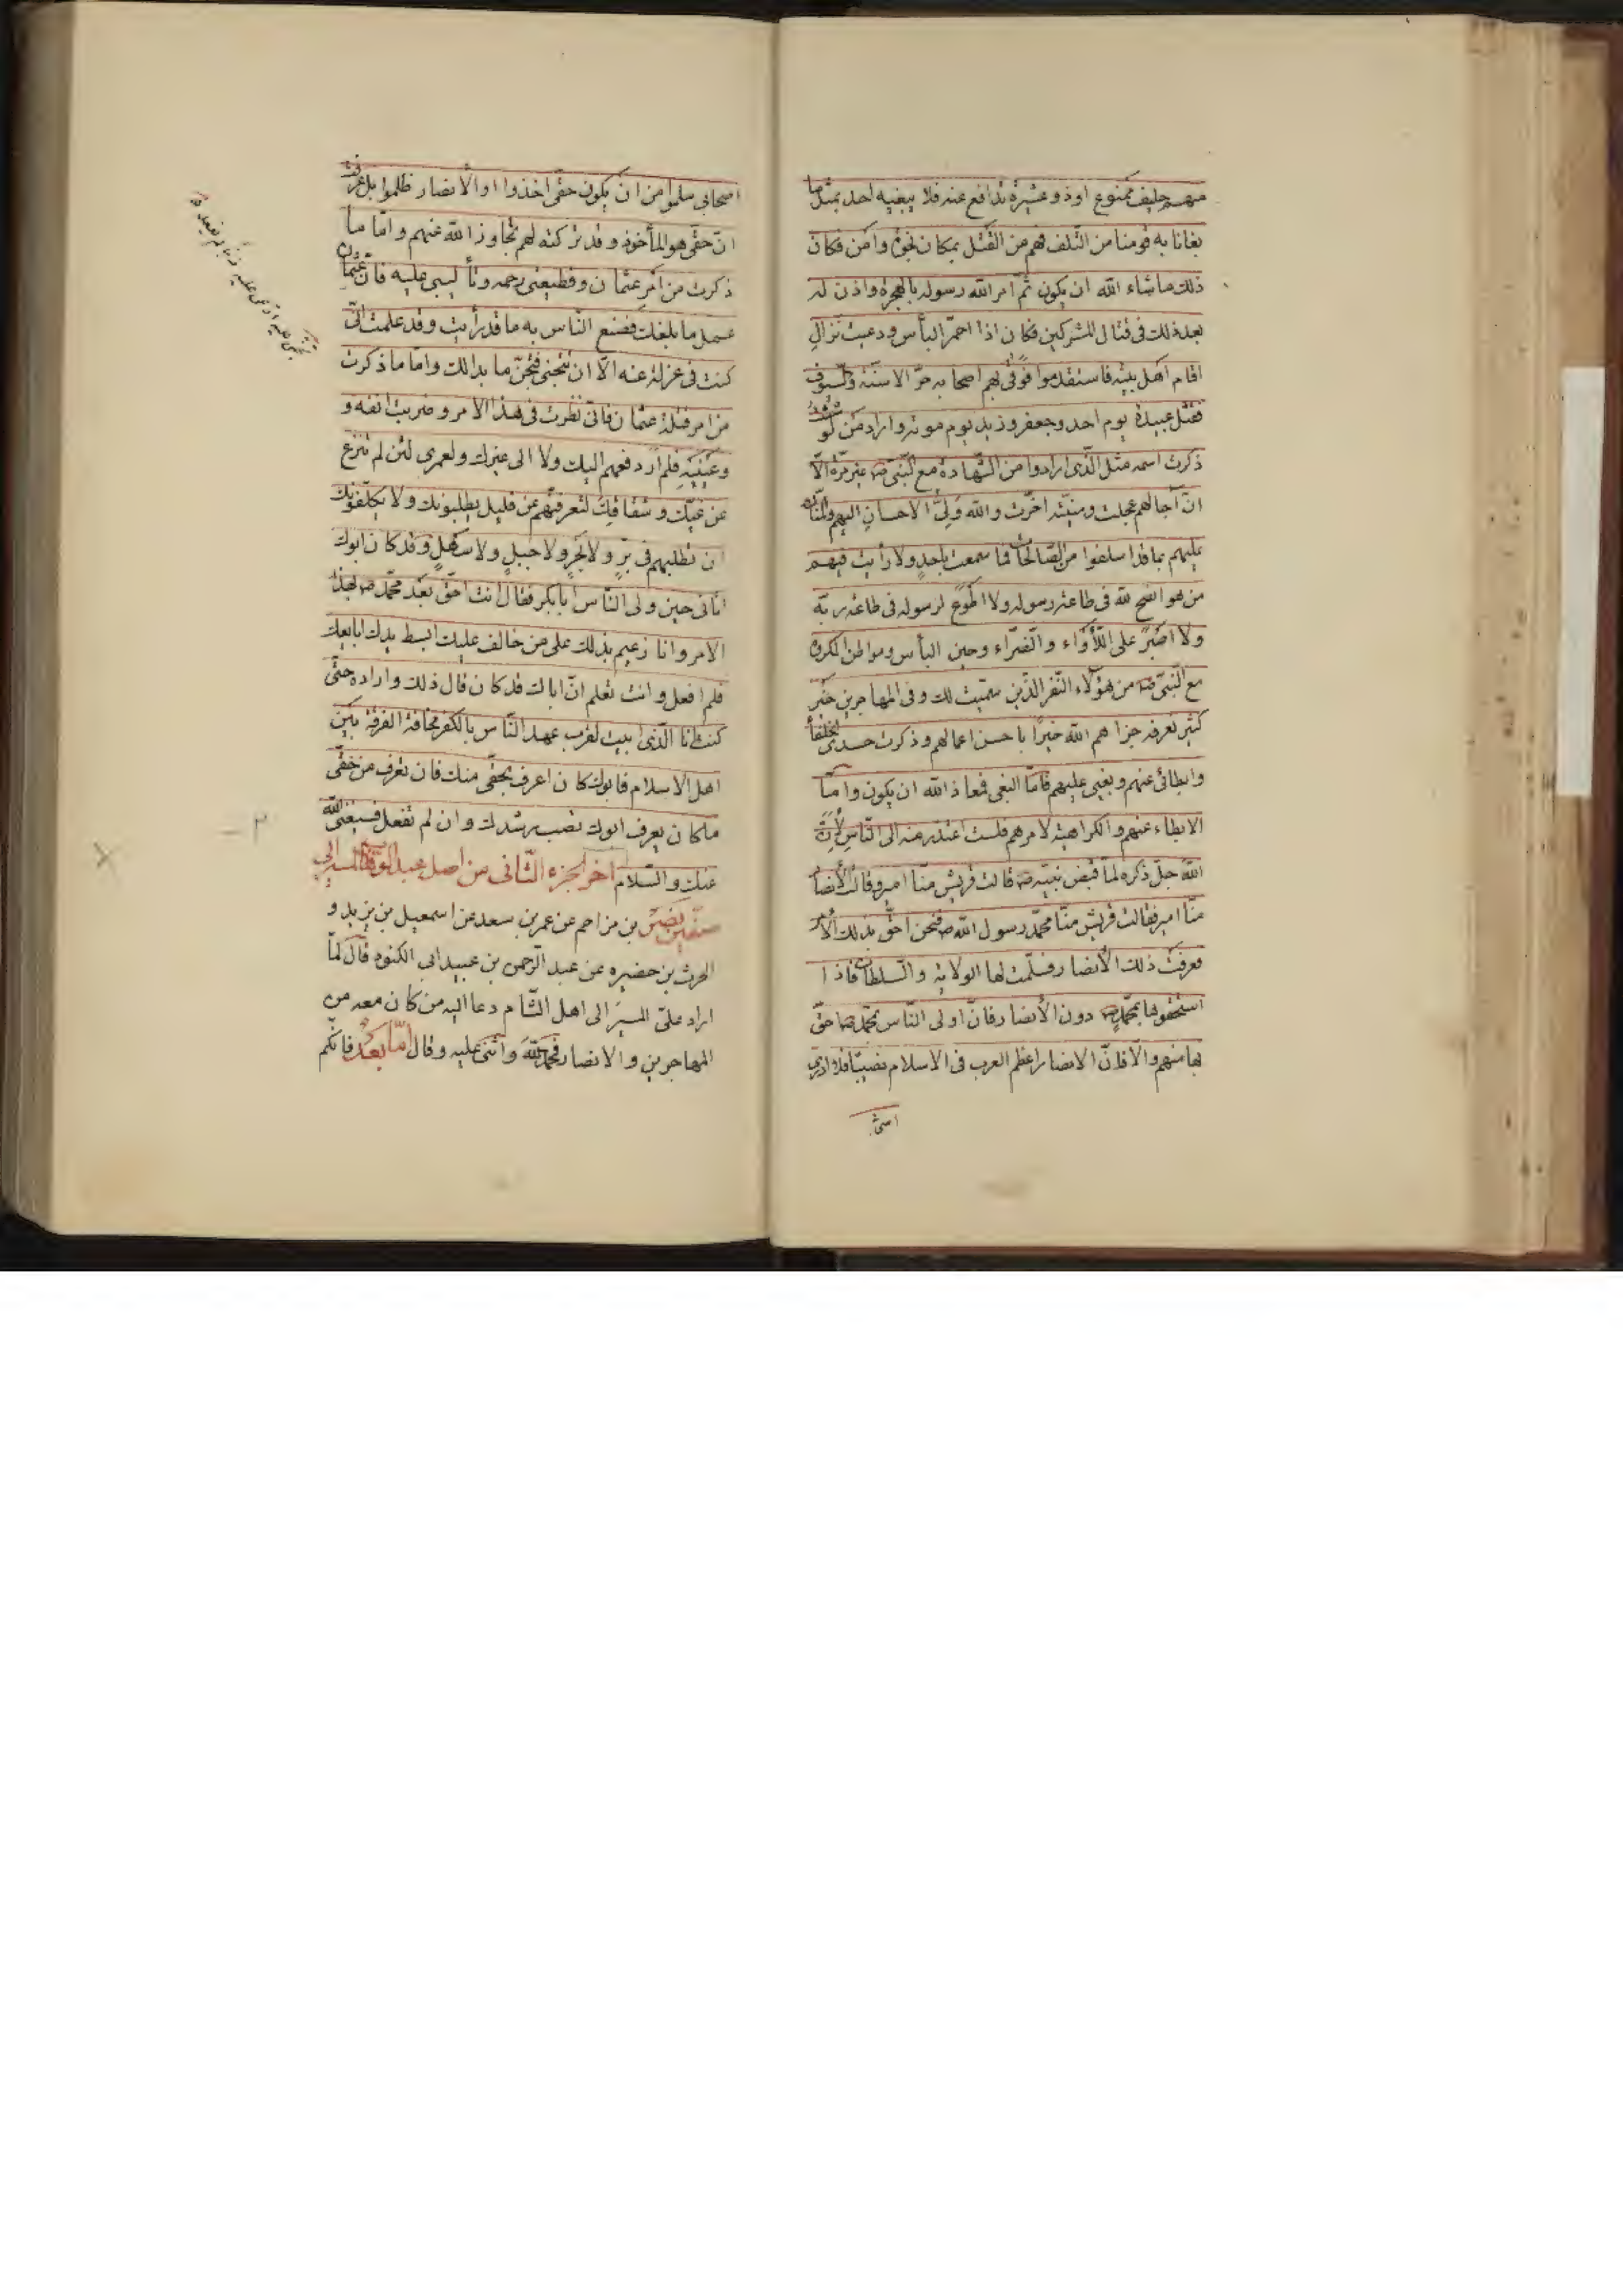 منهم حليف ممنوع او ذو عشيرة تدافع عنه فلا يبغيه احد بمثل ما
بغانا به قومنا من التلف فهم من القتل بمكان نجوة وامن فكان
ذلك ما شاء الله ان يكون ثم امر الله رسوله بالهجرة واذن له
بعد ذلك فى قتال المشركين فكان اذا احمر البأس ودعيت نزال
اقام اهل بيته فاستقدموا فوقى بهم اصحابه حر الاسنة والسيوف
فقتل عبيدة يوم احد وجعفر وزيد يوم موته واراد من لو شئت
ذكرت اسمه مثل الذى ارادوا من الشهادة مع النبى صه غير مرة الا
ان آجالهم عجلت ومنيته اخرت والله ولى الاحسان اليهم والمنان
عليهم بما قد اسلفوا من الصالحات فما سمعت باحد ولا رأيت فيهم
من هو انصح لله فى طاعة رسوله ولا اطوع لرسوله فى طاعة ربه
ولا اصبر على اللأواء والضراء وحين البأس ومواطن المكروه
مع النبى صه من هؤلاء النفر الذين سميت لك وفى المهاجرين خير
كثير نعرفه جزاهم الله خيرا باحسن اعمالهم وذكرت حسدى الخلفأ
وابطائى عنهم وبغيى عليهم فاما البغى فمعاذ الله ان يكون واما
الابطاء عنهم والكراهية لامرهم فلست اعتذر منه الى الناس لان
الله جل ذكره لما قبض نبيه صه قالت قريش منا امير وقالت الأنصار
منا امير فقالت قريش منا محمد رسول الله صه فنحن احق بذلك الأمر
فعرفت ذلك الأنصار فسلمت لها الولاية والسلطان فاذا
استحقوها بمحمد صه دون الأنصار فان اولى الناس بمحمد صه احق
بها منهم والا فان الانصار اعظم العرب فى الاسلام نصيبا فلا ادرى
اصحابى سلموا من ان يكون حقى اخذوا او الأنصار ظلموا بل عرفت
ان حقى هو المأخوذ وقد تركته لهم تجاوز الله عنهم واما ما
ذكرت من امر عثمان وقطيعتى رحمه وتأليبى عليه فان عثمان
عمل ما بلغك فصنع الناس به ما قد رأيت وقد علمت انى
كنت فى عزلة عنه الا ان تتجنى فتجن ما بدا لك واما ما ذكرت
من امر قتلة عثمان فانى نظرت فى هذا الامر وضربت انفه و
وعينيه فلم ار دفعهم اليك ولا الى غيرك ولعمرى لئن لم تنزع
عن غيك وشقاقك لتعرفنهم عن قليل يطلبونك ولا يكلفونك
ان تطلبهم فى بر ولا بحر ولا جبل ولا سهل وقد كان ابوك
اتانى حين ولى الناس ابا بكر فقال انت احق بعد محمد صه بهذا
الامر وانا زعيم بذلك على من خالف عليك ابسط يدك ابايعك
فلم افعل وانت تعلم ان اباك قد كان قال ذلك واراده حتى
كنت انا الذى ابيت لقرب عهد الناس بالكفر مخافة الفرقة بين
اهل الاسلام فابوك كان اعرف بحقى منك فان تعرف من حقى
ما كان يعرف ابوك تصب رشدك وان لم تفعل فسيغنى الله
عنك والسلام اخر الجزء الثانى من اصل عبد الوهاب المسير الى
صفين نصر بن مزاحم عن عمر بن سعد عن اسمعيل بن يزيد و
الحرث بن حضيره عن عبد الرحمن بن عبيد ابى الكنود قال لما
اراد على المسير الى اهل الشام دعا اليه من كان معه من
المهاجرين والانصار فحمد الله واثنى عليه وقال اما بعد فانكم